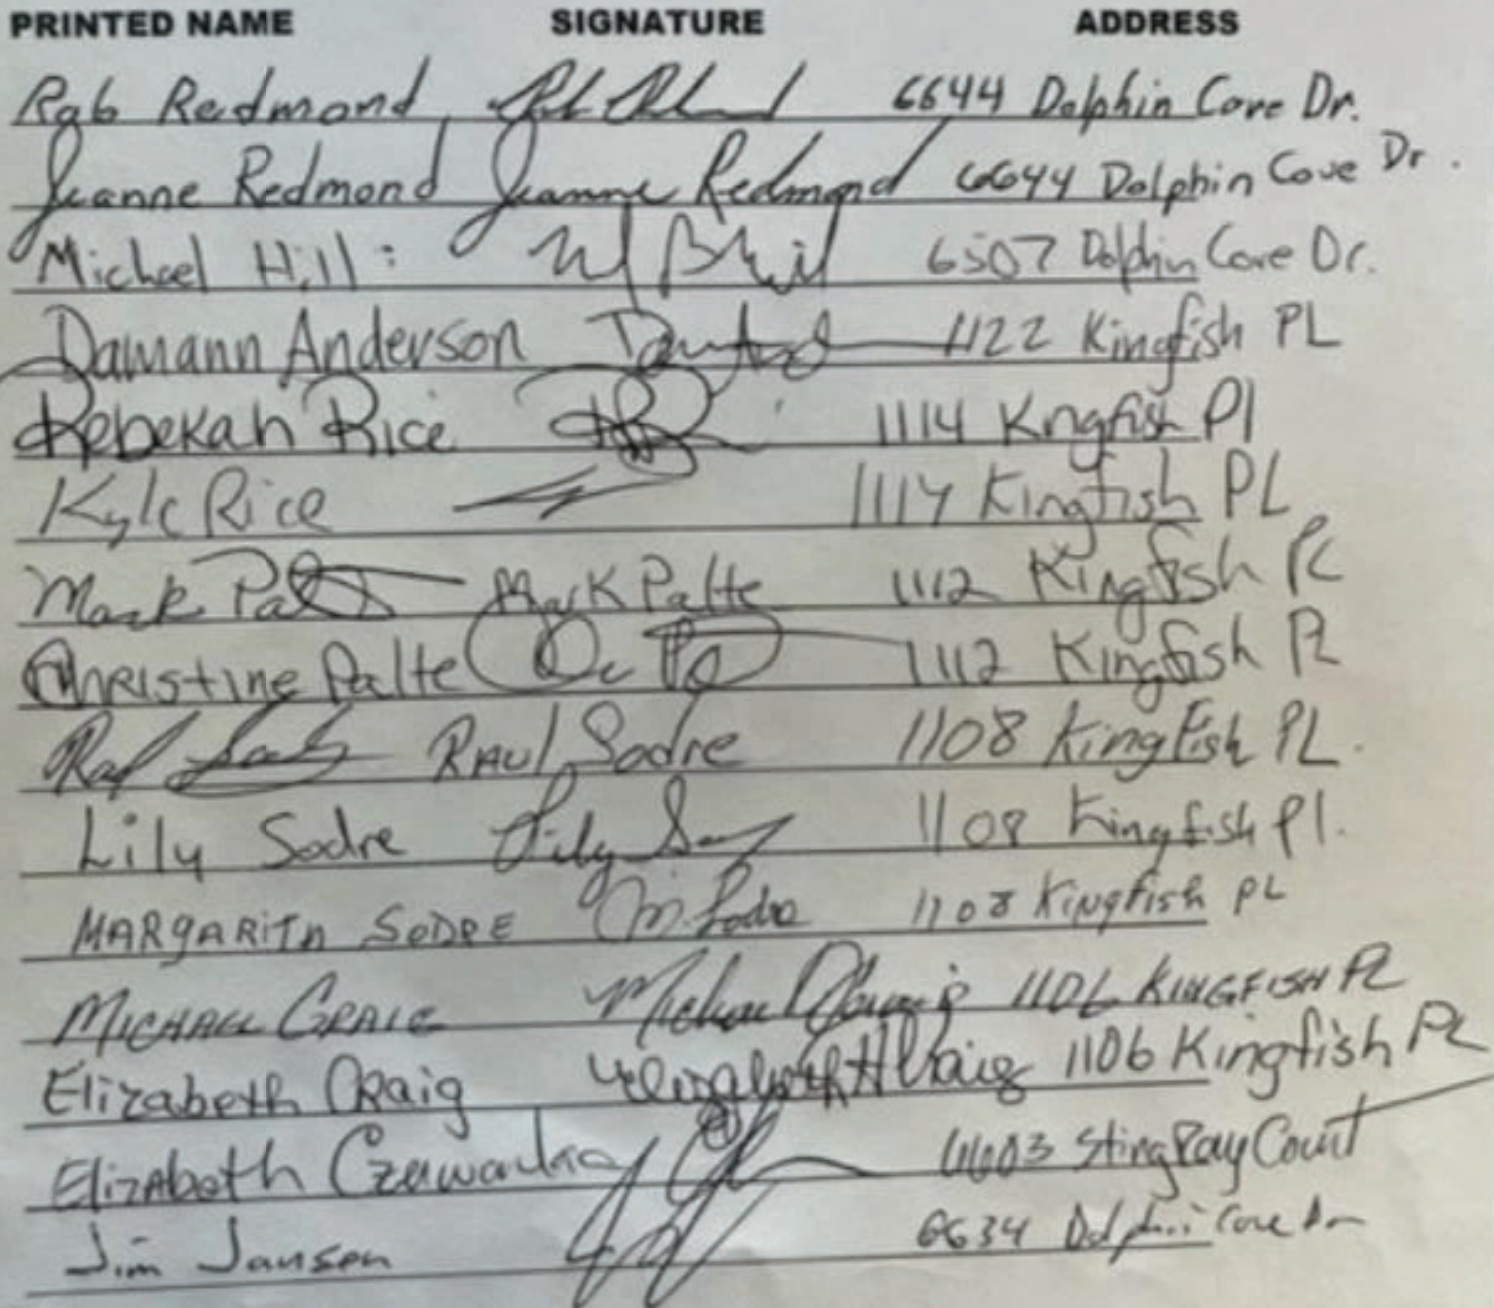 PRINTED NAME SIGNATURE ADDRESS
Rob Redmond 6644 Dolphin Cove Dr.
Jeanne Redmond Jeanne Redmond 6644 Dolphin Cove Dr.
Michael Hill: 6507 Dolphin Cove Dr.
Damann Anderson 1122 Kingfish PL
Rebekah Rice 1114 Kngfish Pl
Kyle Rice 1114 Kingfish PL
Mark Mark Palte 1112 Kingfish PL
Christine Palte 1112 Kingfish PL
RAUL Sodre 1108 KingFish PL.
Lily Sodre Lily 1108 Kingfish Pl.
MARGARITA SODRE M. Sodre 1108 Kingfish PL
MICHAEL CRAIG Michael 1106 KINGFISH PL
Elizabeth CRaig Elizabeth H Craig 1106 Kingfish PL
ElizAbeth 6603 StingRay Court
Jim Jansen 6634 Dolphin Cove Dr